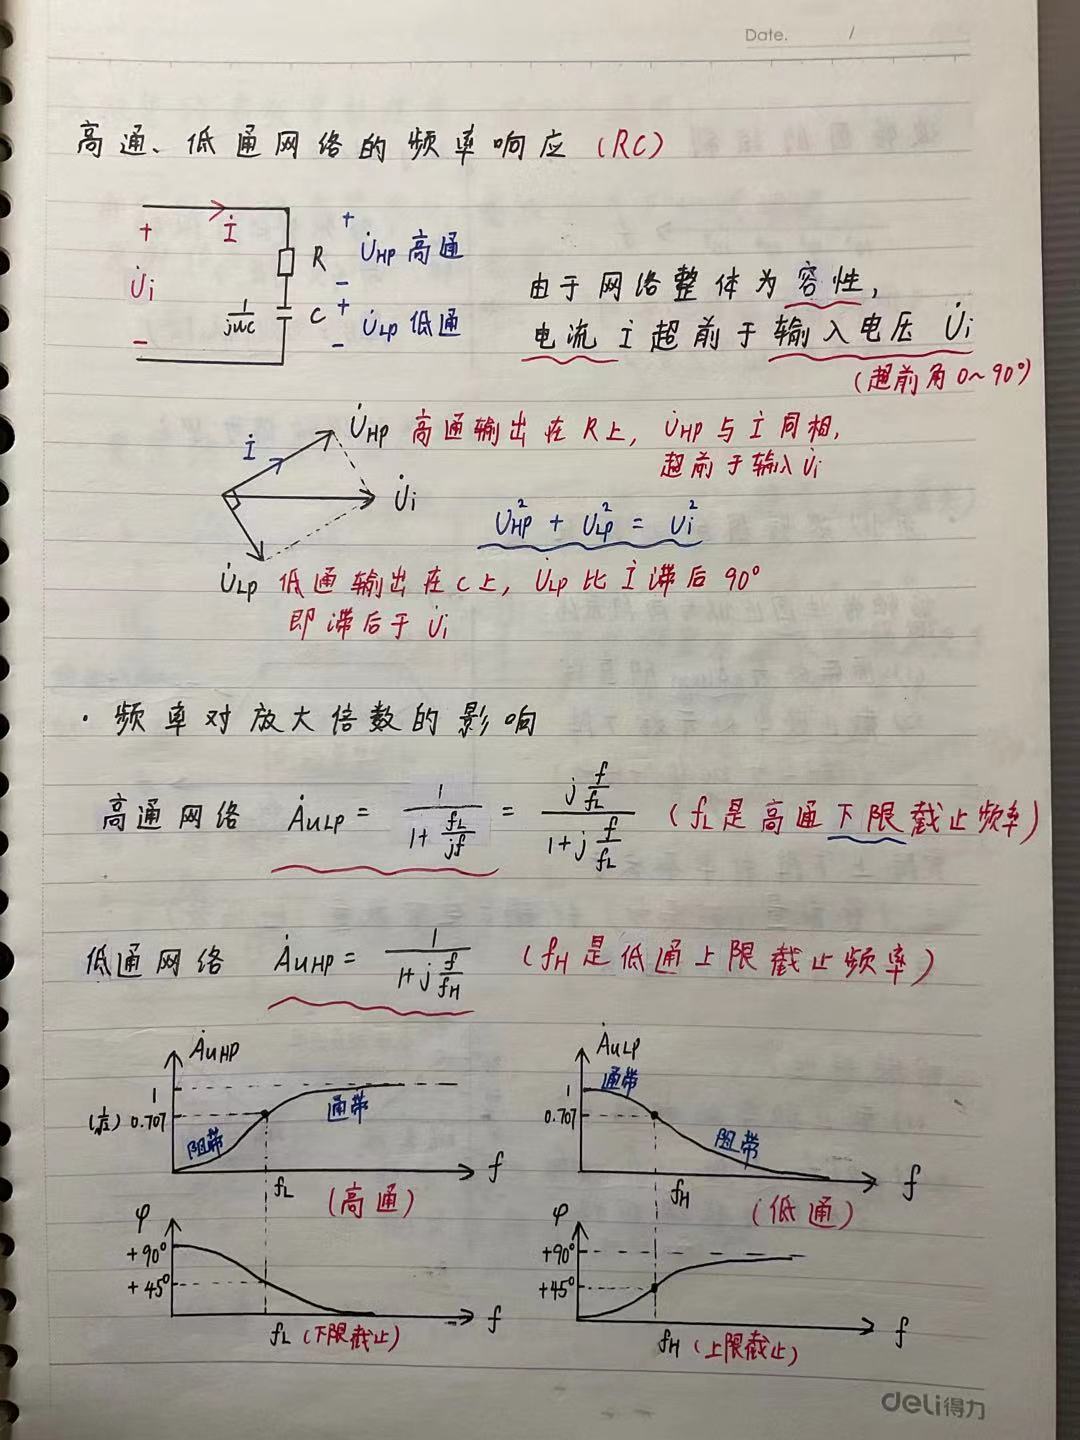 Date. /
高通、低通网络的频率响应 (RC)
+ İ + U̇HP 高通
R
U̇i −
1/jωc C + U̇LP 低通
− −
由于网络整体为容性,
电流 İ 超前于输入电压 U̇i
(超前角0~90°)
İ U̇HP 高通输出在R上, U̇HP与İ同相,
超前于输入U̇i
U̇i
U²HP + U²LP = Ui²
U̇LP 低通输出在C上, U̇LP比İ滞后90°
即滞后于U̇i
· 频率对放大倍数的影响
高通网络 ȦuLP = 1/(1+fL/jf) = (j f/fL)/(1+j f/fL) (fL是高通下限截止频率)
低通网络 ȦuHP = 1/(1+j f/fH) (fH是低通上限截止频率)
ȦuHP
1
(1/√2) 0.707
阻带 通带
fL f
(高通)
ȦuLP
1 通带
0.707
阻带
fH f
(低通)
φ
+90°
+45°
fL (下限截止) f
φ
+90°
+45°
fH (上限截止) f
deli得力